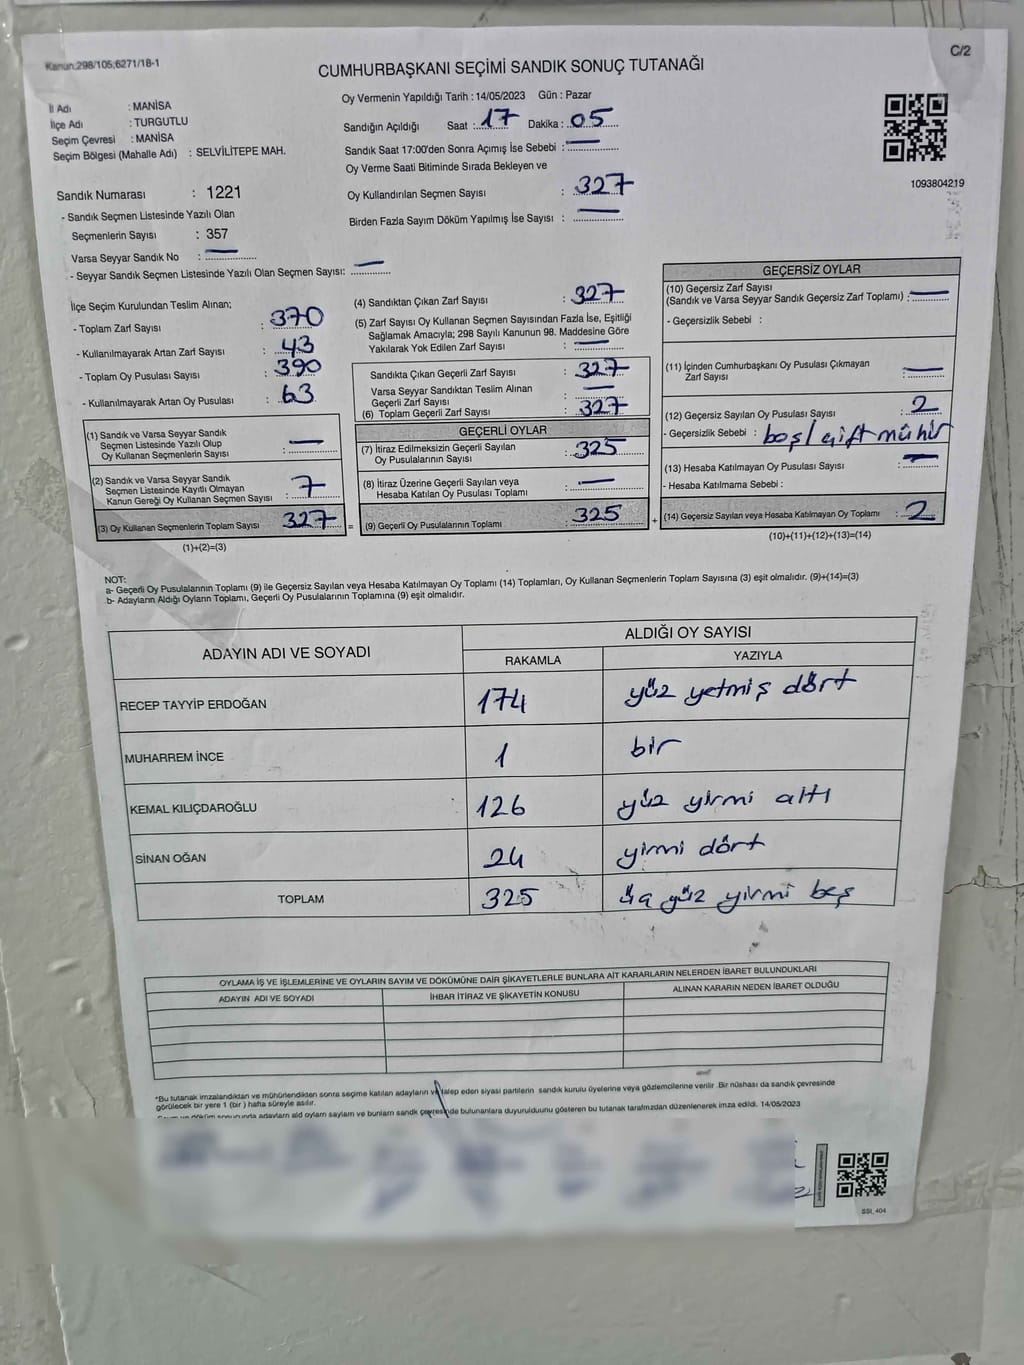 Kanun:298/105;6271/18-1
C/2
CUMHURBAŞKANI SEÇİMİ SANDIK SONUÇ TUTANAĞI
İl Adı : MANİSA
İlçe Adı : TURGUTLU
Seçim Çevresi : MANİSA
Seçim Bölgesi (Mahalle Adı) : SELVİLİTEPE MAH.
Sandık Numarası : 1221
- Sandık Seçmen Listesinde Yazılı Olan
Seçmenlerin Sayısı : 357
Varsa Seyyar Sandık No : —
- Seyyar Sandık Seçmen Listesinde Yazılı Olan Seçmen Sayısı: —
Oy Vermenin Yapıldığı Tarih : 14/05/2023 Gün : Pazar
Sandığın Açıldığı Saat : 17 Dakika : 05
Sandık Saat 17:00'den Sonra Açımış İse Sebebi : —
Oy Verme Saati Bitiminde Sırada Bekleyen ve
Oy Kullandırılan Seçmen Sayısı : 327
Birden Fazla Sayım Döküm Yapılmış İse Sayısı : —
1093804219
İlçe Seçim Kurulundan Teslim Alınan;
- Toplam Zarf Sayısı : 370
- Kullanılmayarak Artan Zarf Sayısı : 43
- Toplam Oy Pusulası Sayısı : 390
- Kullanılmayarak Artan Oy Pusulası : 63
(1) Sandık ve Varsa Seyyar Sandık
Seçmen Listesinde Yazılı Olup
Oy Kullanan Seçmenlerin Sayısı : —
(2) Sandık ve Varsa Seyyar Sandık
Seçmen Listesinde Kayıtlı Olmayan
Kanun Gereği Oy Kullanan Seçmen Sayısı : 7
(3) Oy Kullanan Seçmenlerin Toplam Sayısı : 327
(1)+(2)=(3)
(4) Sandıktan Çıkan Zarf Sayısı : 327
(5) Zarf Sayısı Oy Kullanan Seçmen Sayısından Fazla İse, Eşitliği
Sağlamak Amacıyla; 298 Sayılı Kanunun 98. Maddesine Göre
Yakılarak Yok Edilen Zarf Sayısı : —
Sandıkta Çıkan Geçerli Zarf Sayısı : 327
Varsa Seyyar Sandıktan Teslim Alınan
Geçerli Zarf Sayısı : —
(6) Toplam Geçerli Zarf Sayısı : 327
GEÇERLİ OYLAR
(7) İtiraz Edilmeksizin Geçerli Sayılan
Oy Pusulalarının Sayısı : 325
(8) İtiraz Üzerine Geçerli Sayılan veya
Hesaba Katılan Oy Pusulası Toplamı : —
= (9) Geçerli Oy Pusulalarının Toplamı : 325 +
GEÇERSİZ OYLAR
(10) Geçersiz Zarf Sayısı
(Sandık ve Varsa Seyyar Sandık Geçersiz Zarf Toplamı) : —
- Geçersizlik Sebebi :
(11) İçinden Cumhurbaşkanı Oy Pusulası Çıkmayan
Zarf Sayısı : —
(12) Geçersiz Sayılan Oy Pusulası Sayısı : 2
- Geçersizlik Sebebi : boş/çift mühir
(13) Hesaba Katılmayan Oy Pusulası Sayısı : —
- Hesaba Katılmama Sebebi :
(14) Geçersiz Sayılan veya Hesaba Katılmayan Oy Toplamı : 2
(10)+(11)+(12)+(13)=(14)
NOT:
a- Geçerli Oy Pusulalarının Toplamı (9) ile Geçersiz Sayılan veya Hesaba Katılmayan Oy Toplamı (14) Toplamları, Oy Kullanan Seçmenlerin Toplam Sayısına (3) eşit olmalıdır. (9)+(14)=(3)
b- Adayların Aldığı Oyların Toplamı, Geçerli Oy Pusulalarının Toplamına (9) eşit olmalıdır.
ADAYIN ADI VE SOYADI ALDIĞI OY SAYISI
RAKAMLA YAZIYLA
RECEP TAYYİP ERDOĞAN 174 yüz yetmiş dört
MUHARREM İNCE 1 bir
KEMAL KILIÇDAROĞLU 126 yüz yirmi altı
SİNAN OĞAN 24 yirmi dört
TOPLAM 325 üç yüz yirmi beş
OYLAMA İŞ VE İŞLEMLERİNE VE OYLARIN SAYIM VE DÖKÜMÜNE DAİR ŞİKAYETLERLE BUNLARA AİT KARARLARIN NELERDEN İBARET BULUNDUKLARI
ADAYIN ADI VE SOYADI İHBAR İTİRAZ VE ŞİKAYETİN KONUSU ALINAN KARARIN NEDEN İBARET OLDUĞU
*Bu tutanak imzalandıktan ve mühürlendikten sonra seçime katılan adayların ve talep eden siyasi partilerin sandık kurulu üyelerine veya gözlemcilerine verilir .Bir nüshası da sandık çevresinde
görülecek bir yere 1 (bir ) hafta süreyle asılır.
sandık çevresinde bulunanlara duyurulduunu gösteren bu tutanak tarafımzdan düzenlenerek imza edildi. 14/05/2023
SSI_404